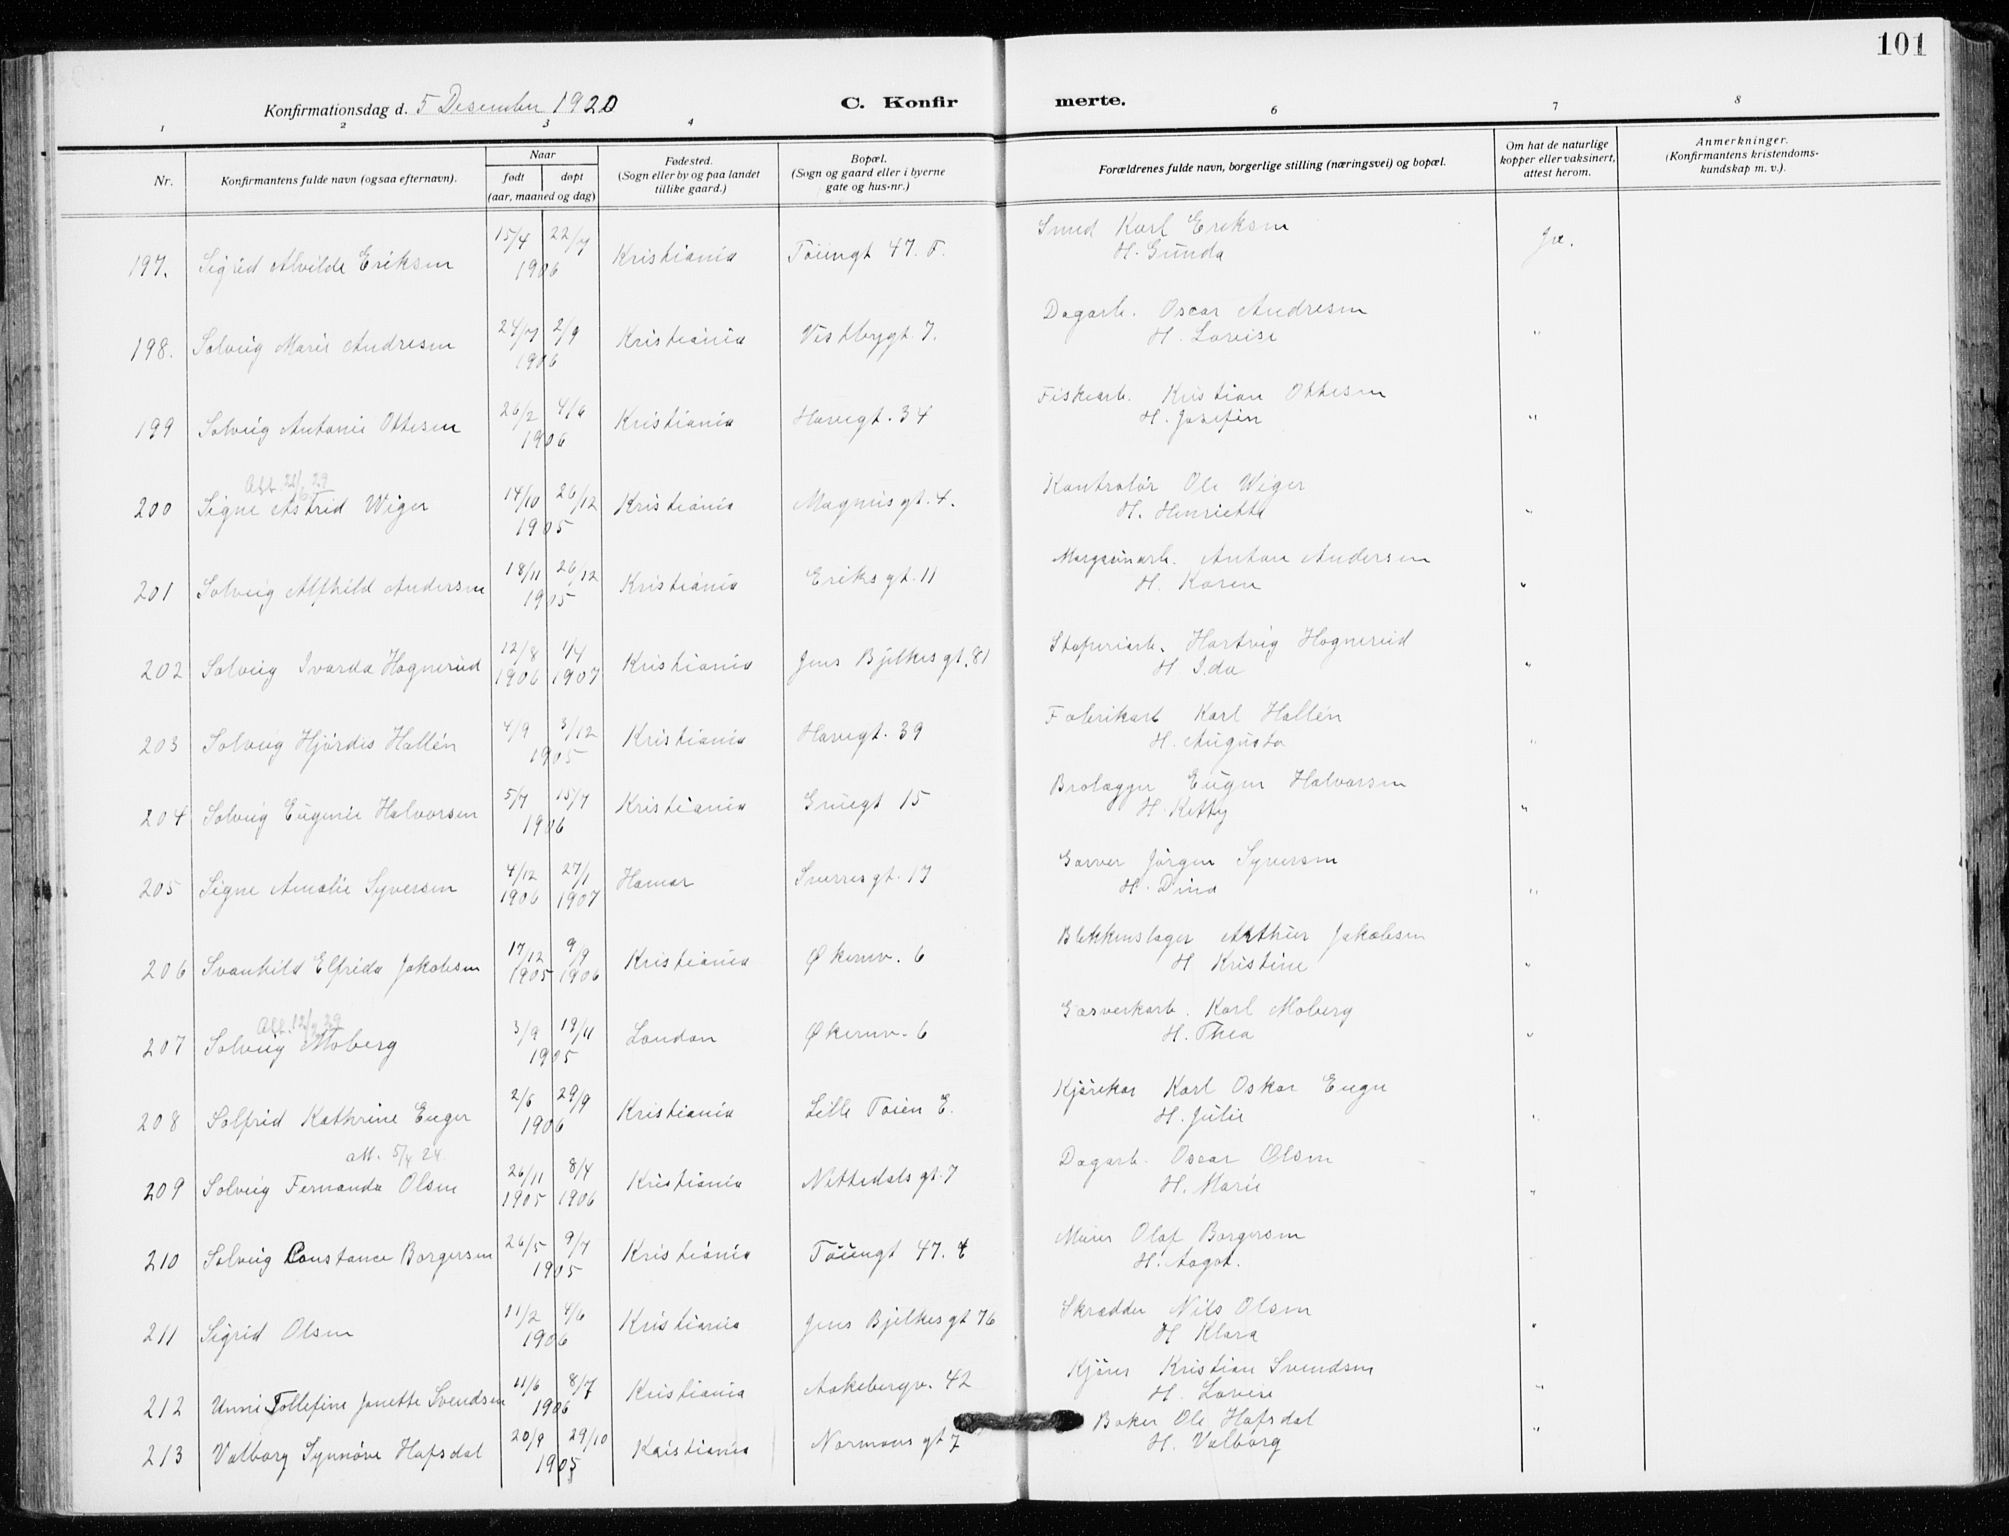 101
Konfirmationsdag d. 5 Desember 1920 C. Konfirmerte.
1 2 3 4 6 7 8
Nr.
Konfirmantens fulde navn (ogsaa efternavn).
Naar
født døpt
(aar, maaned og dag)
Fødested.
(Sogn eller by og paa landet
tillike gaard.)
Bopæl.
(Sogn og gaard eller i byerne
gate og hus-nr.)
Forældrenes fulde navn, borgerlige stilling (næringsvei) og bopæl.
Om hat de naturlige
kopper eller vaksinert,
attest herom.
Anmerkninger.
(Konfirmantens kristendoms-
kundskap m. v.).
197. Sigrid Alvilde Eriksen 15/4 22/7 1906 Kristiania Töiengt 47. F. Smed Karl Eriksen Ja.
H. Gunda
198. Solveig Marie Andresen 24/7 2/9 1906 Kristiania Vestbygt. 7. Dagarb. Oscar Andresen "
H. Lovise
199 Solveig Antonie Ottesen 26/2 4/6 1906 Kristiania Havegt. 34 Fiskearb. Kristian Ottesen "
H. Josefin
Att. 22/6 29
200 Signe Astrid Wiger 14/10 26/12 1905 Kristiania Magnusgt. 4. Kontrolör Ole Wiger "
H. Henriette
201 Solveig Alfhild Andersen 18/11 26/12 1905 Kristiania Eriksgt. 11 Margarinarb. Anton Andersen "
H. Karen
202 Solveig Ivarda Hagnerud 12/8 1906 1/4 1907 Kristiania Jens Bjelkesgt. 81 Støperiarb. Hartvig Hognerud "
H. Ida
203 Solveig Hjördis Hallén 4/9 3/12 1905 Kristiania Havegt. 39 Fabrikarb Karl Hallén "
H. Augusta
204 Solveig Eugenie Halvorsen 5/7 15/7 1906 Kristiania Gruegt 15 Brolægger Eugen Halvorsen "
H. Kitty
205 Signe Amalie Syversen 4/12 1906 27/1 1907 Hamar Sverresgt. 17 Garver Jörgen Syversen "
H. Dina
206 Svanhild Elfrida Jakobsen 17/12 1905 9/9 1906 Kristiania Økernv. 6 Blikkenslager Arthur Jakobsen "
H Kristine
Att. 12/2 29
207 Solveig Moberg 3/9 19/11 1905 London Økernv. 6 Gasverkarb. Karl Moberg "
H. Thea
208 Solfrid Kathrine Enger 2/6 29/9 1906 Kristiania Lille Toien E. Kjörekar Karl Oskar Enger "
H. Julie
att. 5/4 24.
209 Solveig Fernanda Olsen 26/11 1905 8/4 1906 Kristiania Nittedalsgt. 7 Dagarb. Oscar Olsen "
H. Marie
210 Solveig Constance Borgersen 26/5 9/7 1905 Kristiania Töiengt 47. Murer Olaf Borgersen
H. Aagot.
211 Sigrid Olsen 11/2 4/6 1906 Kristiania Jens Bjelkesgt 76 Skrædder Nils Olsen "
H Klara
212 Unni Tollefine Janette Svendsen 11/6 8/7 1906 Kristiania Aakebergv. 42 Kjörer Kristian Svendsen "
H. Lovise
213 Valborg Synnöve Hafsdal 20/9 29/10 1905 Kristiania Normansgt 7 Baker Ole Hafsdal "
H. Valborg